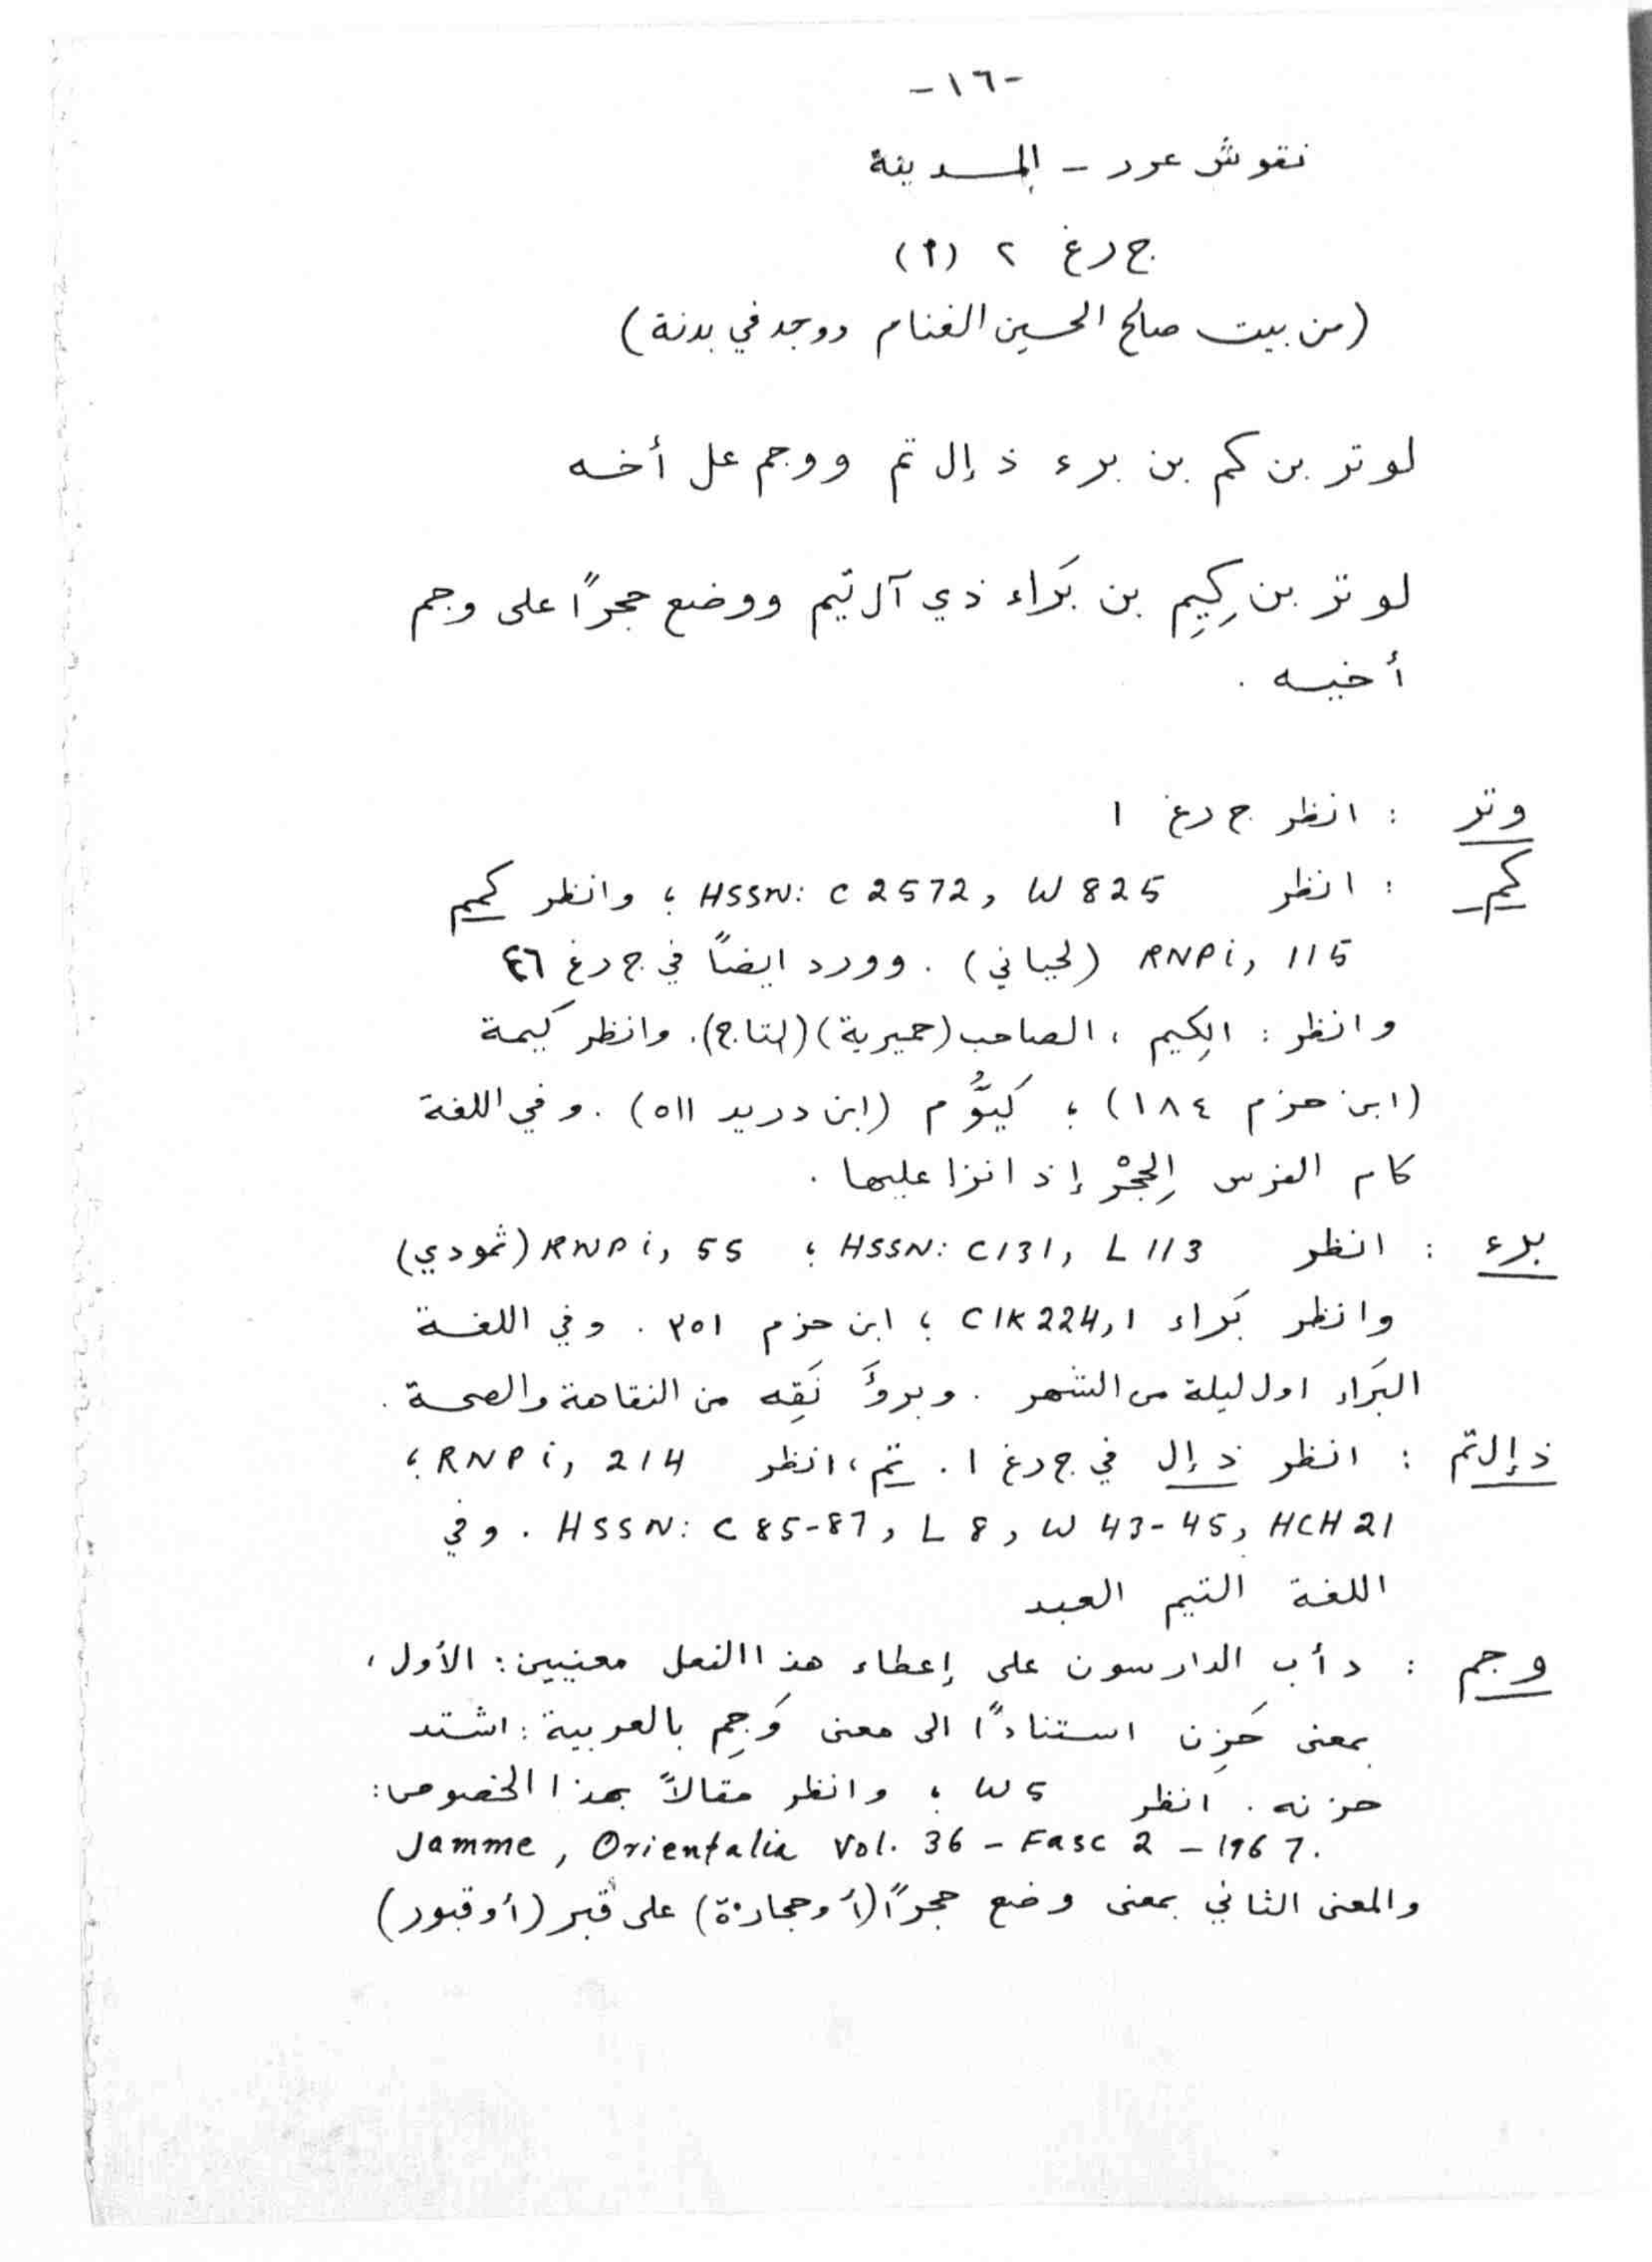 -١٦-
نقوش عرر - المدينة
ج رغ ٢ (٩)
(من بيت صالح الحسين الغنام ووجد في بدنة)
لوتر بن كم بن برء ذ إل تم ووجم عل أخه
لوتر بن كِيِم بن بَراء ذي آل تَيم ووضع حجراً على وجم
أخيه .
وتر : انظر ج رغ ١
كم : انظر HSSN: C 2572, W 825 ؛ وانظر كميم
RNPi, 115 (لحياني) . وورد ايضاً في ج رغ ٤٦
وانظر : الكِيم ، الصاحب (حميرية) (التاج). وانظر كَيمة
(ابن حزم ١٨٤) ؛ كَيُّوم (ابن دريد ٥١١) . وفي اللغة
كام الفرس الِحجْر إذ انزا عليها .
برء : انظر HSSN: C131, L 113 ؛ RNPi, 55 (ثمودي)
وانظر بَراء CIK 224,1 ؛ ابن حزم ٣٥١ . وفي اللغة
البَراء اول ليلة من الشهر . وبروَ نَقِه من النقاهة والصحة .
ذ إل تم : انظر ذ إل في ج رغ ١ . تم ، انظر RNPi, 214 ؛
HSSN: C 85-87, L 8, W 43-45, HCH 21 . وفي
اللغة التيم العبد
وجم : دأب الدارسون على إعطاء هذا الفعل معنيين : الأول ،
بمعنى حَزِن استناداً الى معنى وَجِم بالعربية : اشتد
حزنه . انظر W 5 ؛ وانظر مقالاً بهذا الخصوص :
Jamme, Orientalia Vol. 36 - Fasc 2 - 1967.
والمعنى الثاني بمعنى وضع حجراً (أو حجارة) على قبر (أو قبور)